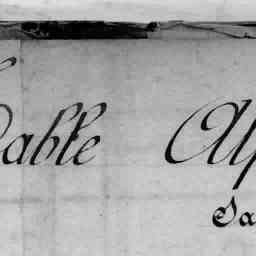 able Alp
Sa